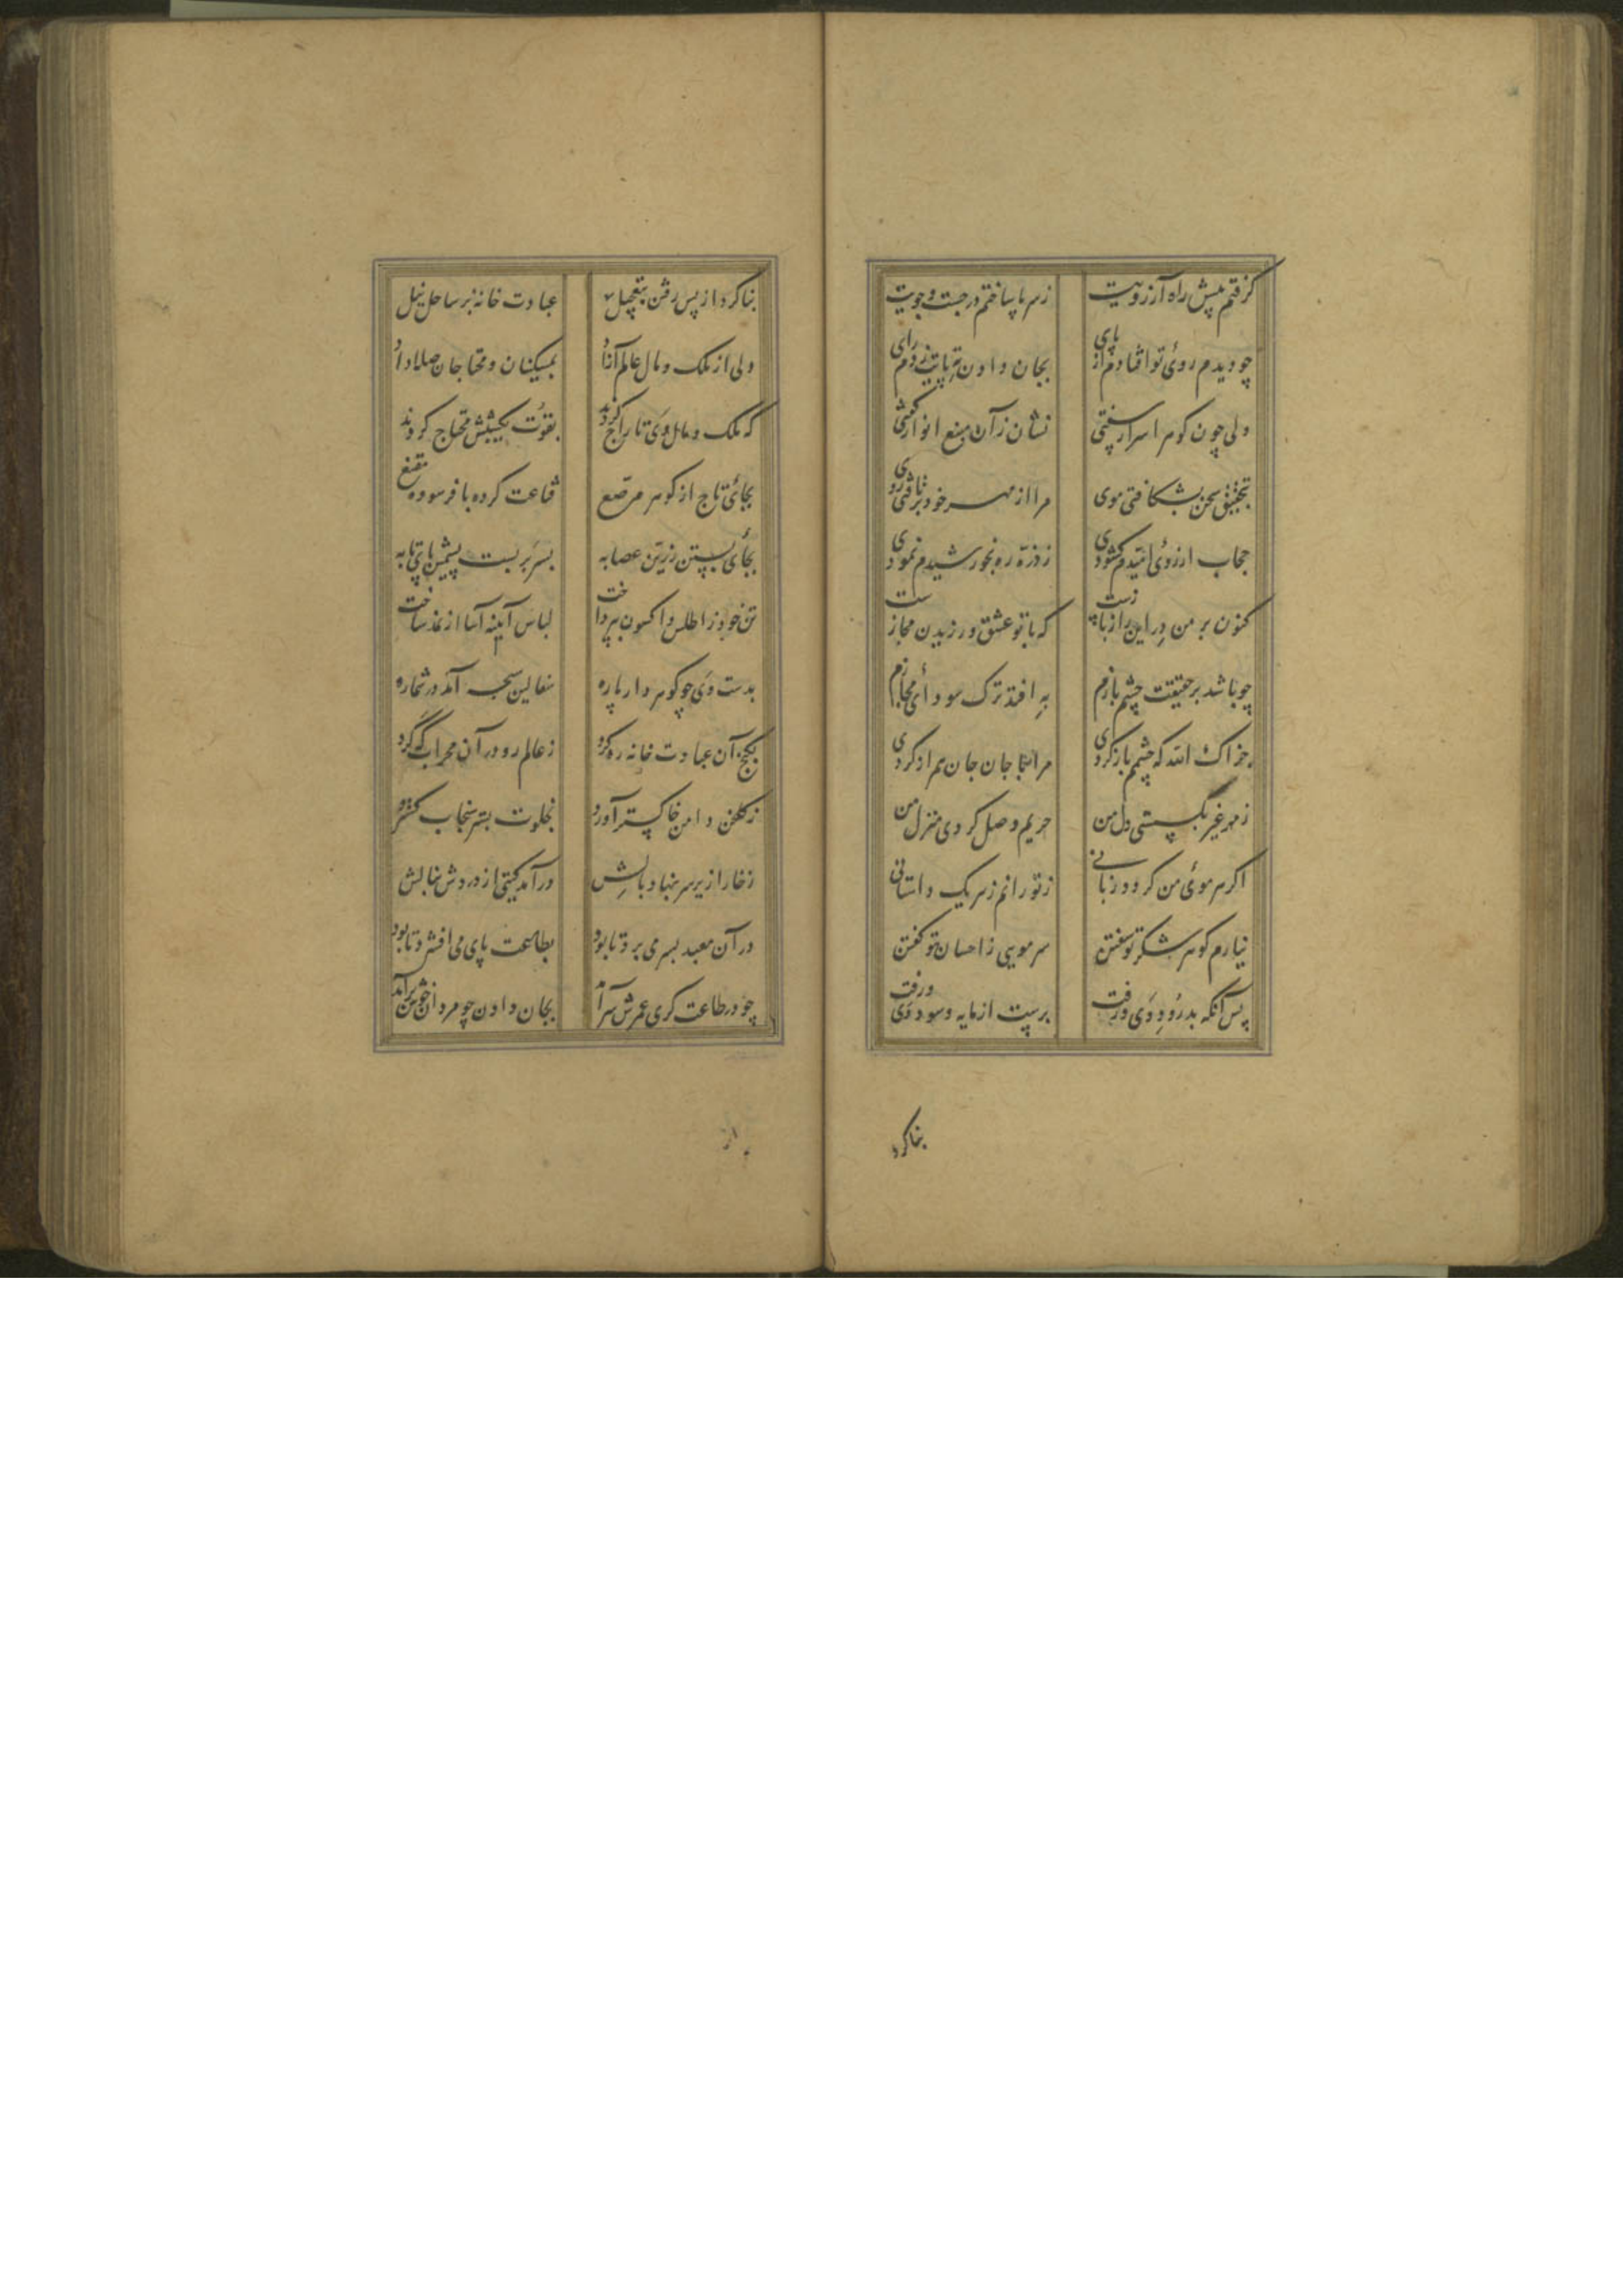 گرفتم پیش راه آرزویت زسر پا ساختم در جست و جویت
چو دیدم روئ تو افتادم از پای بجان دادن تر پایت زدم رای
ولی چون گوهر اسرار سفتی نشان زآن منبع انوار گفتی
بتحقیق سخن بشکافتی موی مرا از مهر خود برتافتی روی
حجاب از روئ امیدم گشودی ز ذره ره بخورشیدم نمودی
کنون بر من در این راز بازست که با تو عشق ورزیدن مجازست
چو باشد بر حقیقت چشم بازم به افتد ترک سودائ مجازم
جزاک الله که چشمم باز کردی مرا با جان جان همراز کردی
ز مهر غیر بگسستی دل من حریم وصل کردی منزل من
اگر هر موئ من گردد زبانی ز تو رانم ز هر یک داستانی
نیارم گوهر شکر تو سفتن سر مویی ز احسان تو گفتن
پس آنگه بدرود وی درفت برست از مایه و سود وی ورفت
بنا کرد
بنا کرد از پس رفتن بتعجیل عبادت خانه بر ساحل نیل
ولی از ملک و مال عالم آزاد بمسکینان و محتاجان صلا داد
که ملک و مال وی تاراج کردند بقوت یکشبش محتاج کردند
بجائ تاج از گوهر مرصع قناعت کرده با فرسوده مقنع
بجائ بستن زرین عصابه بسر بر بست پشمین پای تابه
تن خود ز اطلس و اکسون بپرداخت لباس آیینه آسا از نمد ساخت
بدست وی چو گوهردار یاره سفالین سبحه آمد در شماره
بکنج آن عبادت خانه ره کرد ز عالم رو در آن محراب گه کرد
ز گلخن دامن خاکستر آورد بخلوت بستر سنجاب گسترد
ز خارا زیر سر بنهاد بالش درآمد گیتی از دردش بنالش
در آن معبد بسر می برد تا بود بطاعت پای می افشرد تا بود
چو در طاعت گری عمرش سر آمد بجان دادن چو مردان خوش برآمد